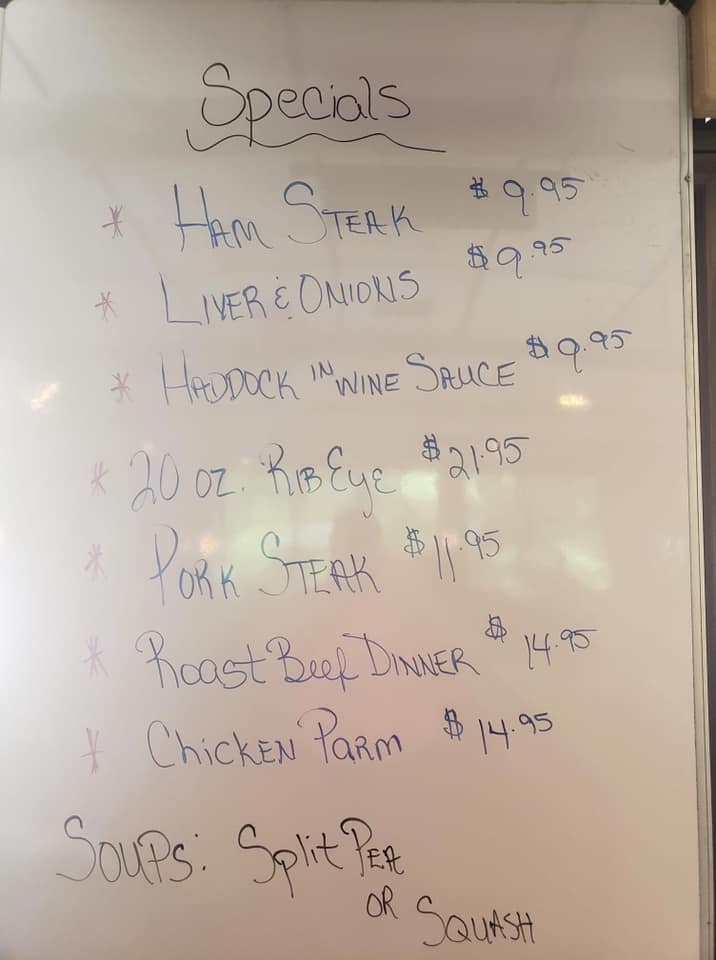 Specials
* HAM STEAK $9.95
* LIVER & ONIONS $9.95
* HADDOCK IN WINE SAUCE $9.95
* 20 OZ. RIB EYE $21.95
* PORK STEAK $11.95
* Roast Beef DINNER $14.95
* CHICKEN PARM $14.95
SOUPS: Split PEA
OR SQUASH